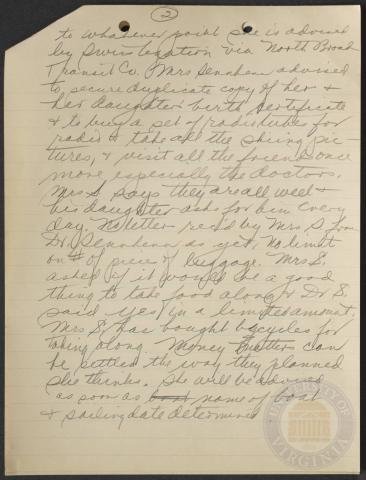 2
to whatever point she is advised
by Swiss Legation via North Broad
Transit Co. Mrs Sennhenn advised
to secure duplicate copy of her &
her daughter birth certificate
& to buy a set of radio tubes for
radio & take all the skiing pic-
tures, & visit all the friends once
more especially the doctors.
Mrs S says they are all well &
his daughter asks for him every
day. No letter recd by Mrs S from
Dr. Sennhenn as yet, no limit
on # of pieces of luggage. Mrs S.
asked if it would be a good
thing to take food along & Dr S.
said yes in a limited amount.
Mrs S. has bought bicycles for
taking along. Money matter can
be settled the way they planned
she thinks. She will be advised
as soon as boat name of boat
& sailing date determined
UNIVERSITY OF
VIRGINIA